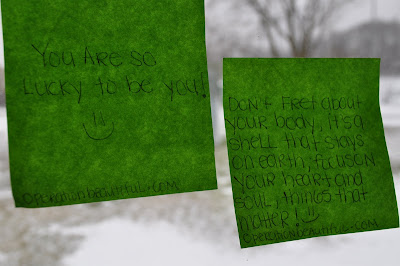 You Are so
Lucky to be you!
operationbeautiful.com
Don't Fret about
your body, its a
shell that stays
on earth, focus on
your heart and
soul, things that
matter!
operationbeautiful.com